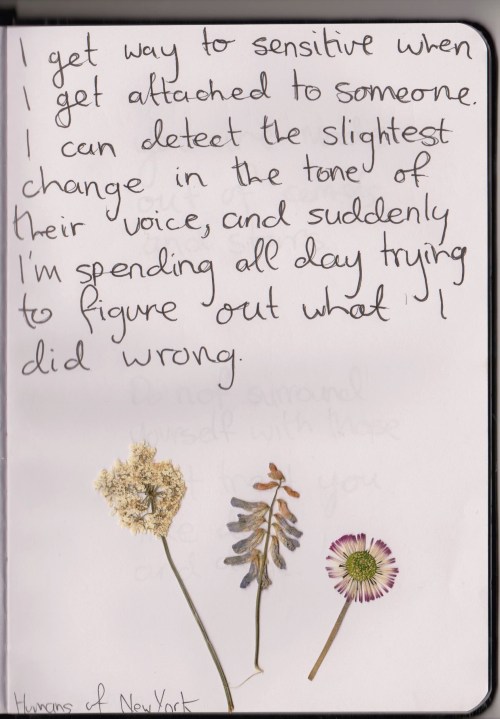 I get way to sensitive when
I get attached to someone.
I can detect the slightest
change in the tone of
their voice, and suddenly
I'm spending all day trying
to figure out what I
did wrong.
Humans of New York